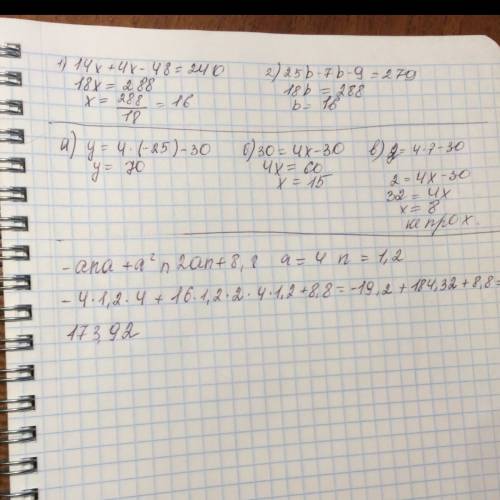 1) 14x+4x-48=240
18x = 288
x = 288/18 = 16
2) 25b-7b-9=279
18b = 288
b = 16
а) y = 4·(-25)-30
y = 70
б) 30 = 4x-30
4x = 60
x = 15
в) y = 4·7-30
2 = 4x-30
32 = 4x
x = 8
не прох.
-ana + a² n 2an + 8,8 a = 4 n = 1,2
-4·1,2·4 + 16·1,2·2·4·1,2+8,8 = -19,2 + 184,32 + 8,8 =
173,92